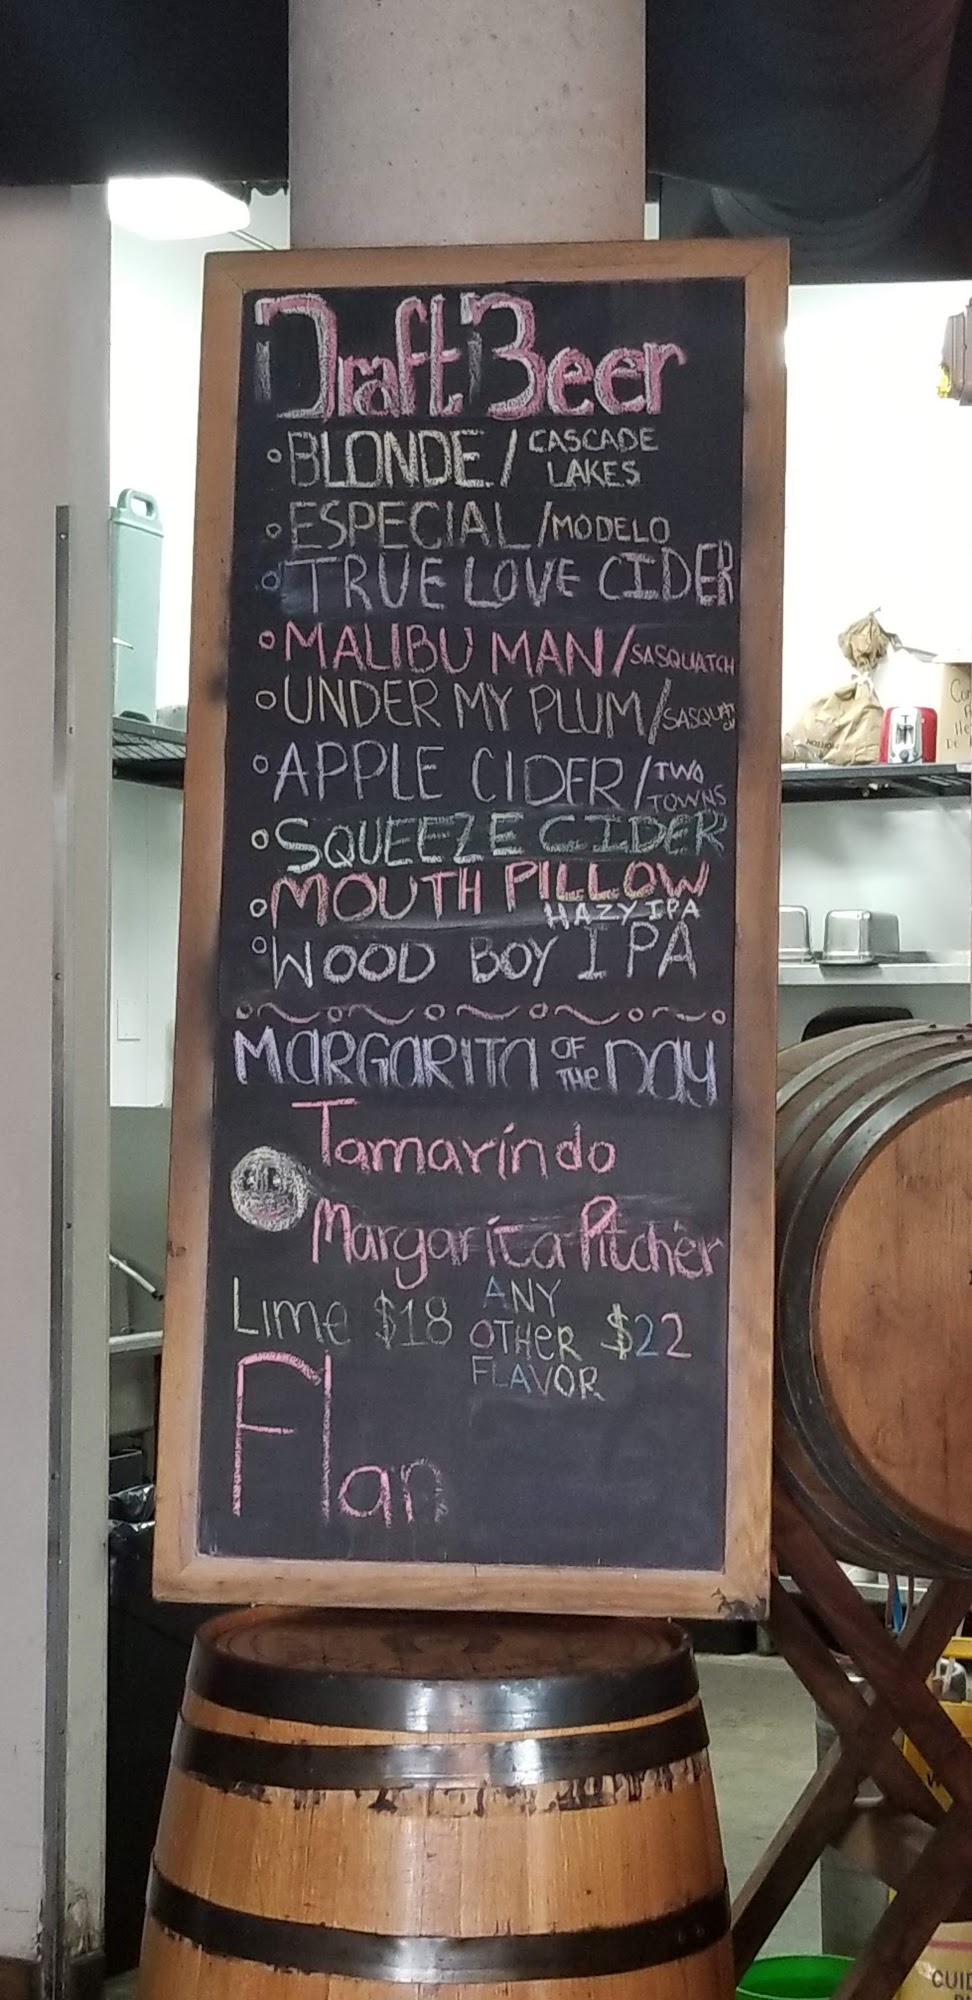 Draft Beer
BLONDE / CASCADE LAKES
ESPECIAL / MODELO
TRUE LOVE CIDER
MALIBU MAN / SASQUATCH
UNDER MY PLUM /
APPLE CIDER / TWO TOWNS
SQUEEZE CIDER
MOUTH PILLOW
HAZY IPA
WOOD BOY IPA
MARGARITA OF THE DAY
Tamarindo
Margarita Pitcher
Lime $18 ANY OTHER FLAVOR $22
Flan